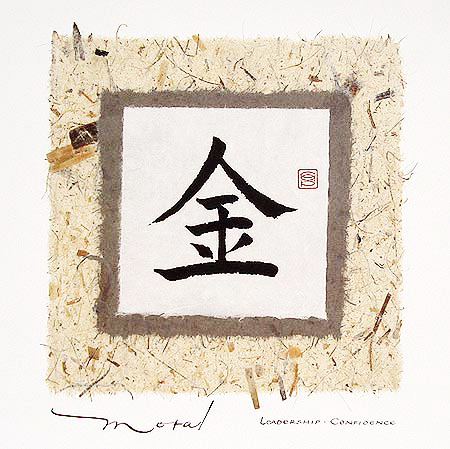 金
Metal
LEADERSHIP · CONFIDENCE